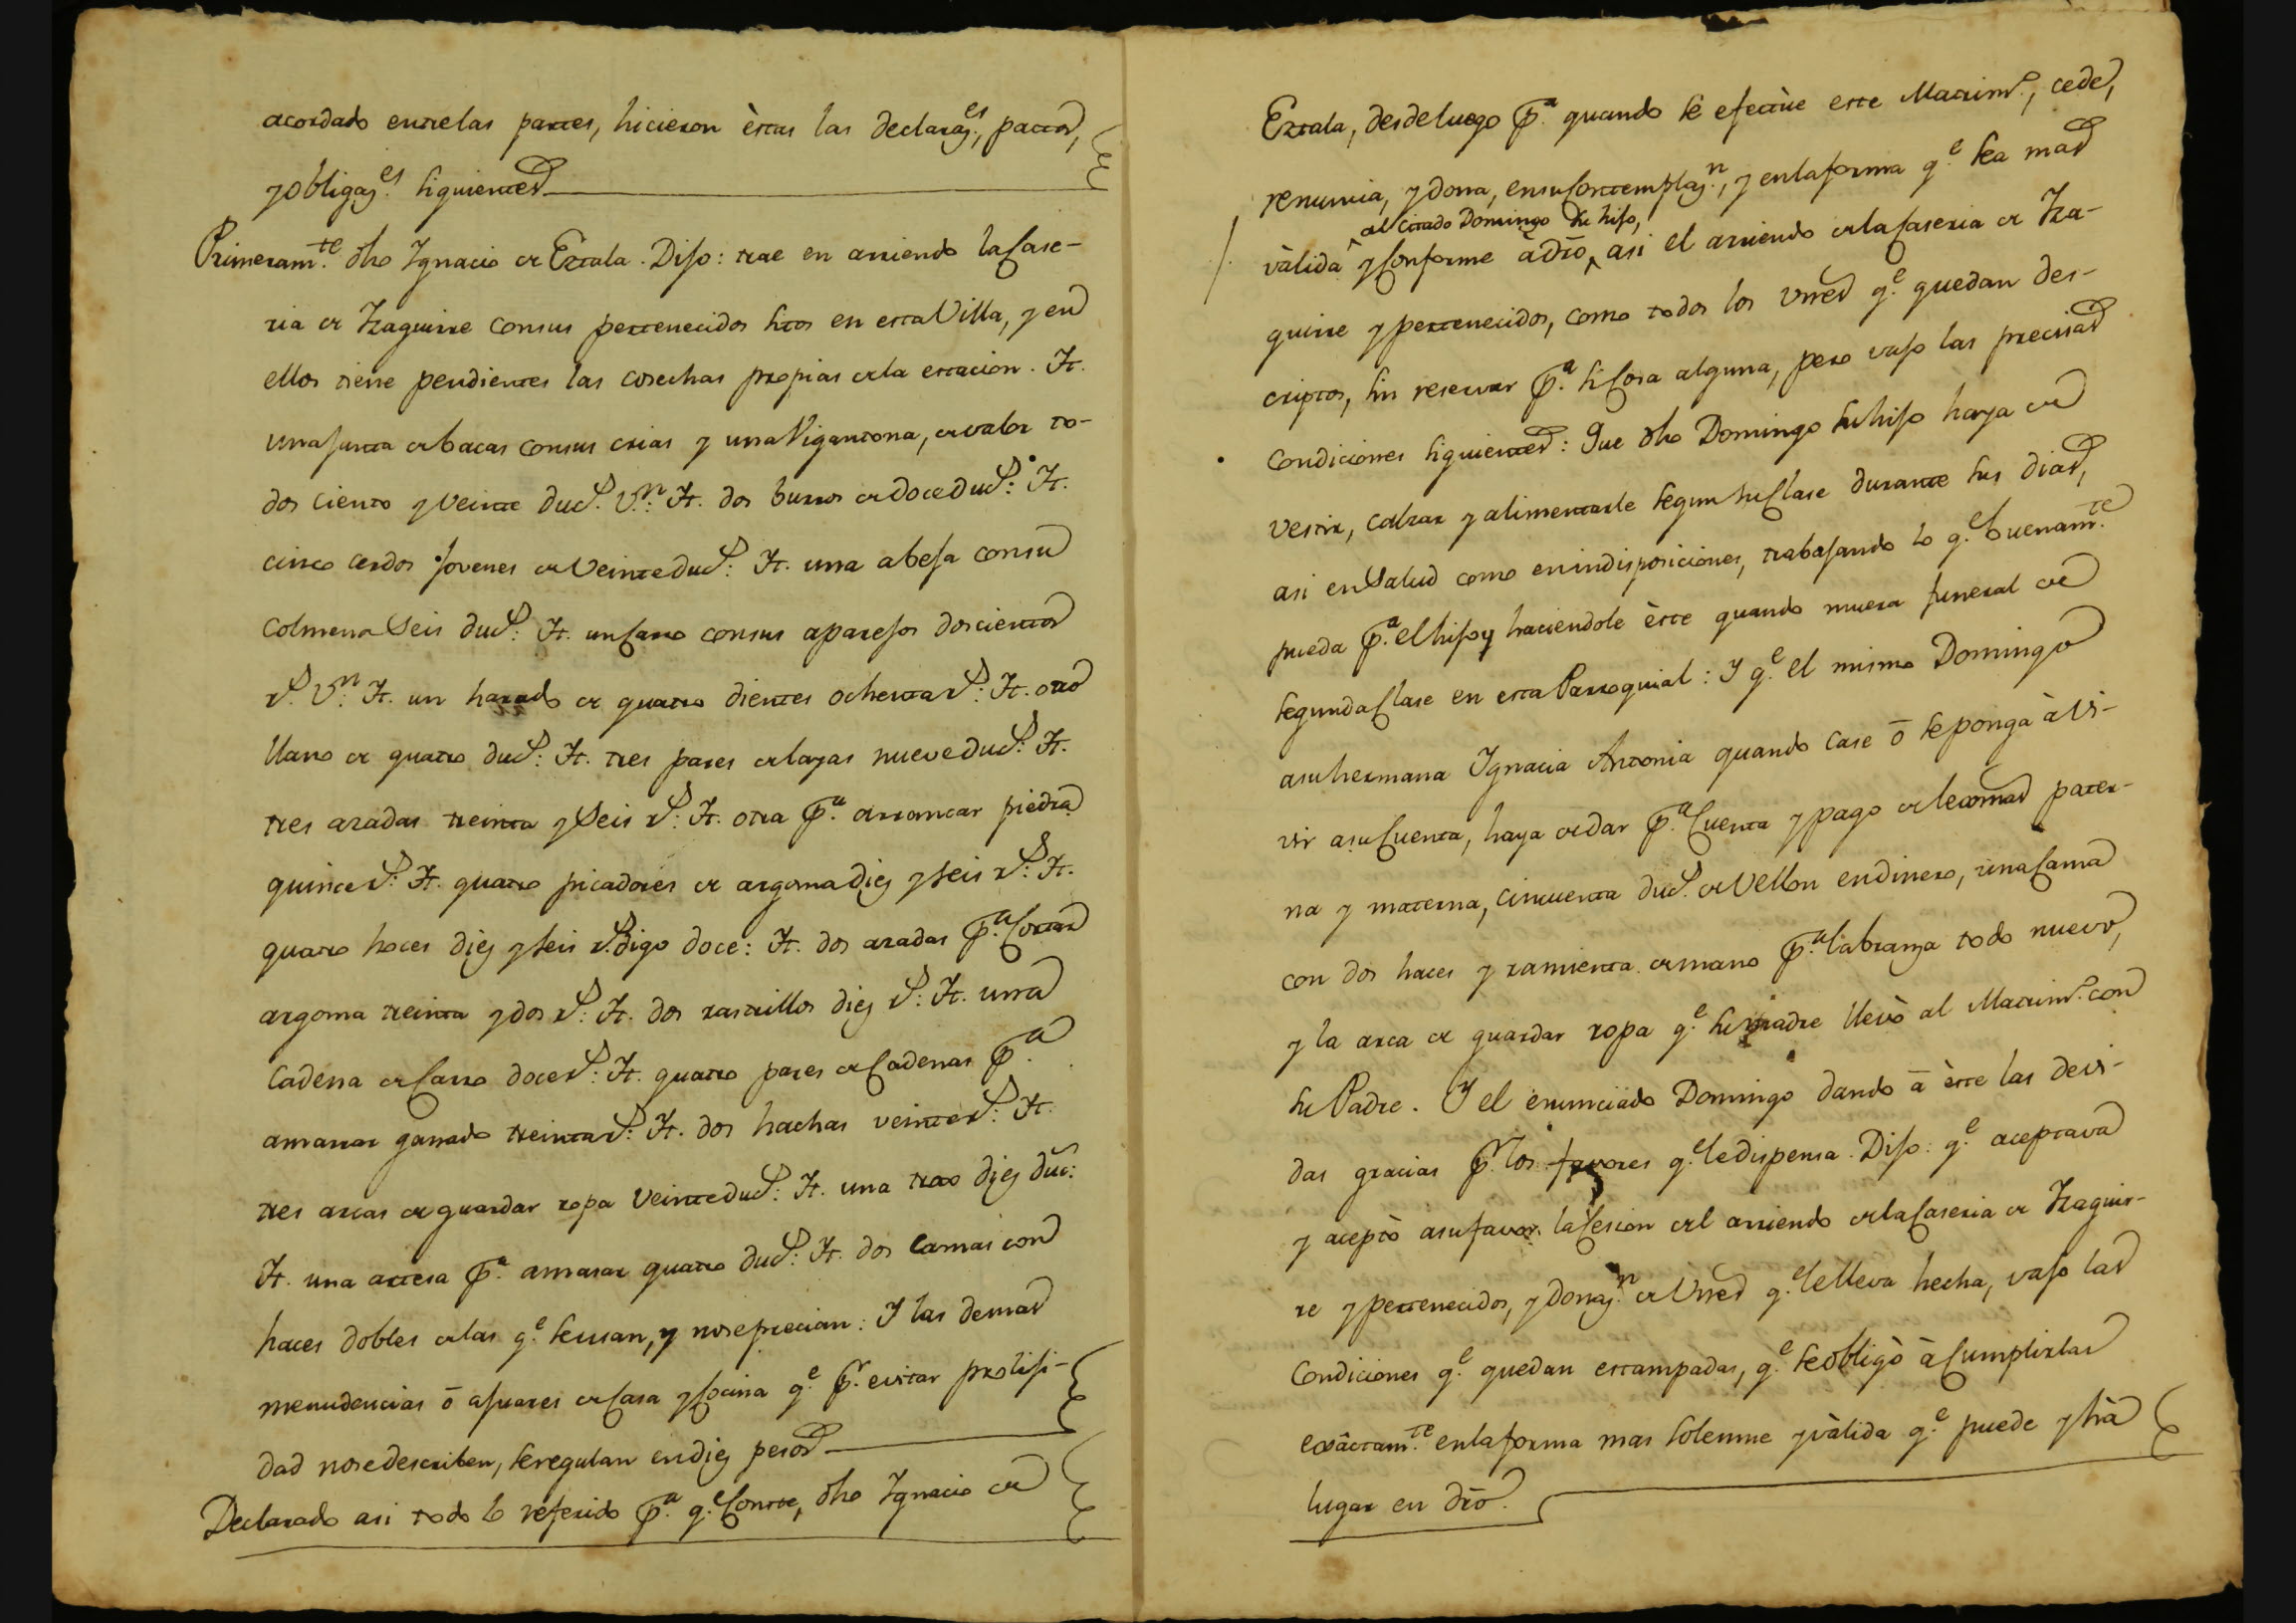 acordado entre las partes, hicieron èstas las declarac.es, pactos,
y obligac.es siguientes
Primeram.te dho Ygnacio de Eztala. Dijo: trae en arriendo la Case-
ria de Yzaguirre con sus pertenecidos sitos en esta Villa, y en
ellos tiene pendientes las cosechas propias de la estacion. Yt.
una junta de bacas con sus crias y una Vigantona, de valor to-
dos ciento y Veinte duc.s V.n: Yt. dos burros de doce duc.s: Yt.
cinco cerdos jovenes de Veinte duc.s: Yt. una abeja con su
Colmena Seis duc.s: Yt. un Carro con sus aparejos doscientos
r.s V.n: Yt. un harado de quatro dientes ochenta r.s: Yt. otro
llano de quatro duc.s: Yt. tres pares de layas nueve duc.s: Yt.
tres azadas treinta y Seis r.s: Yt. otra p.a arrancar piedra
quince r.s: Yt. quatro picadores de argoma diez y seis r.s: Yt.
quatro hoces diez y seis r.s digo doce: Yt. dos azadas p.a Cortar
argoma treinta y dos r.s: Yt. dos rastrillos diez r.s: Yt. una
Cadena de Carro doce r.s: Yt. quatro pares de Cadenas p.a
amarrar ganado treinta r.s: Yt. dos hachas veinte r.s: Yt.
tres arcas de guardar ropa Veinte duc.s: Yt. una trao diez duc:
Yt. una artesa p.a amasar quatro duc.s: Yt. dos Camas con
haces dobles de las q.e se usan, y no se precian: Y las demas
menudencias ō ajuares de Casa y Cocina q.e p.r evitar prolisi-
dad no se describen, se regulan en diez pesos
Declarado asi todo lo referido p.a q.e Conste, dho Ygnacio de
Eztala, desde luego p.a quando se efectùe este Matrim.o, cede,
renuncia, y dona, en su Contemplaz.n, y en la forma q.e sea mas
al citado Domingo su hijo,
vàlida y Conforme à dro, asi el arriendo de la Caseria de Yza-
guirre y pertenecidos, como todos los vnes q.e quedan des-
criptos, sin reservar p.a si Cosa alguna, pero vajo las precisas
Condiciones siguientes: Que dho Domingo su hijo haya de
vestir, calzar y alimentarle segun su Clase durante sus dias,
asi en Salud como en indisposiciones, trabajando lo q.e buenam.te
pueda p.a el hijo y haciendole èste quando muera funeral de
segunda Clase en esta Parroquial: Y q.e el mismo Domingo
a su hermana Ygnacia Antonia quando Case ō se ponga à vi-
vir a su Cuenta, haya de dar p.a Cuenta y pago de lexitimas pater-
na y materna, Cincuenta duc.s de Vellon en dinero, una Cama
con dos haces y ramienta de mano p.a labranza todo nuevo,
y la arca de guardar ropa q.e su madre llevò al Matrim.o con
su Padre. Y el enunciado Domingo dando ā èste las devi-
das gracias p.r los favores q.e le dispensa. Dijo: q.e aceptava
y aceptò a su favor la Cesion del arriendo de la Caseria de Yzaguir-
re y pertenecidos, y donaz.n de Vnes q.e le lleva hecha, vajo las
Condiciones q.e quedan estampadas, q.e se obligò à Cumplirlas
exàctam.te en la forma mas solemne y vàlida q.e puede y hà
lugar en dro.